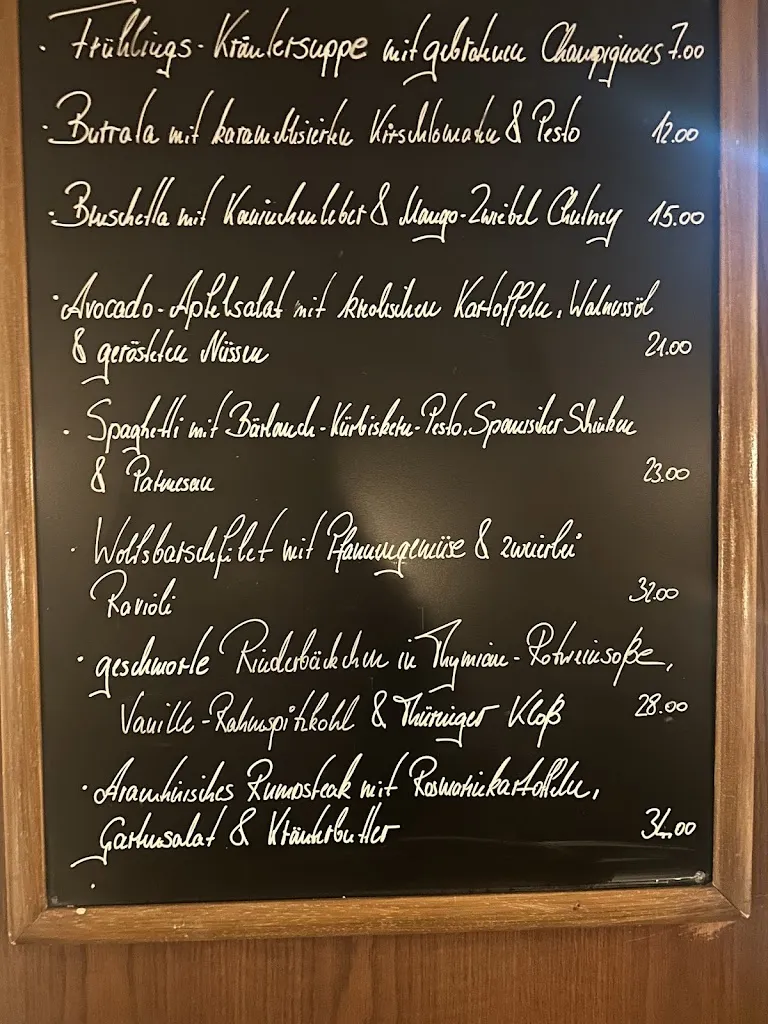 · Frühlings-Kräutersuppe mit gebratenen Champignons 7.00
· Burrata mit karamellisierten Kirschtomaten & Pesto 12.00
· Bruschetta mit Kaninchenleber & Mango-Zwiebel Chutney 15.00
· Avocado-Apfelsalat mit kreolischen Kartoffeln, Walnussöl
& gerösteten Nüssen 21.00
· Spaghetti mit Bärlauch-Kürbiskern-Pesto, Spanischer Schinken
& Parmesan 23.00
· Wolfsbarschfilet mit Pfannengemüse & zweierlei
Ravioli 32.00
· geschmorte Rinderbäckchen in Thymian-Rotweinsoße,
Vanille-Rahmspitzkohl & Thüringer Kloß 28.00
· Argentinisches Rumpsteak mit Rosmarinkartoffeln,
Gartensalat & Kräuterbutter 34.00